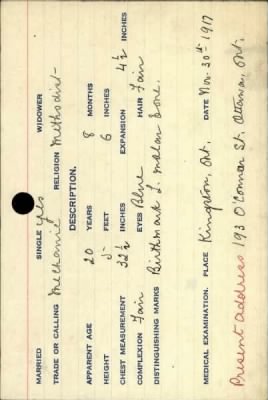 MARRIED SINGLE yes WIDOWER
TRADE OR CALLING Mechanic RELIGION Methodist
DESCRIPTION.
APPARENT AGE 20 YEARS 8 MONTHS
HEIGHT 5 FEET 6 INCHES
CHEST MEASUREMENT 32½ INCHES EXPANSION 4½ INCHES
COMPLEXION Fair EYES Blue HAIR Fair
DISTINGUISHING MARKS Birthmark L. malar bone.
MEDICAL EXAMINATION. PLACE Kingston, Ont. DATE Nov. 30th 1917
Present address 193 O'Connor St. Ottawa, Ont.